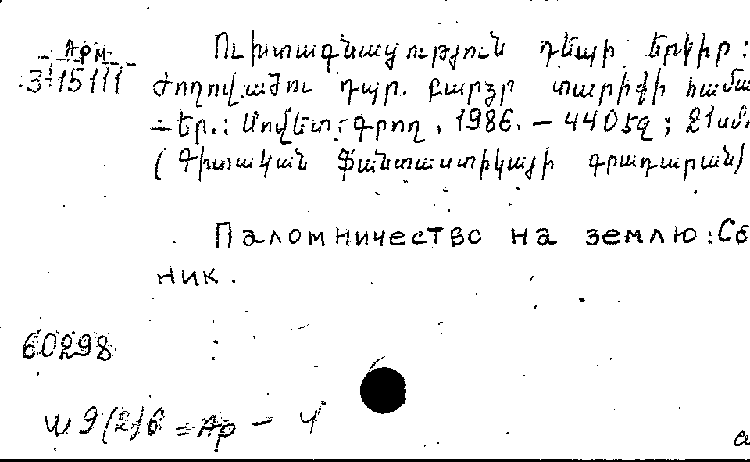 Арм
3-15111
Ուխտագնացություն դեպի Երկիր:
Ժողովածու դպր. բարձր տարիքի համա
—Եր.: Սովետ. գրող, 1986. — 440 էջ; 21 սմ
(Գիտական ֆանտաստիկայի գրադարան)
Паломничество на землю: Сб
ник.
60298
И 9(2)6 = Ар — 4